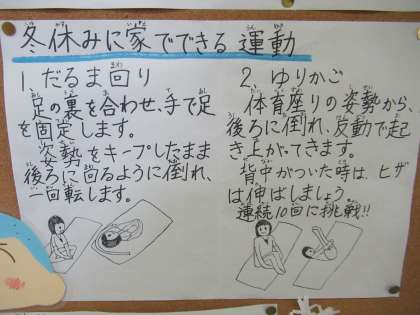 冬休みに家でできる運動
1. だるま回り
足の裏を合わせ、手で足
を固定します。
姿勢をキープしたまま
後ろに回るように倒れ、
一回転します。
2. ゆりかご
体育座りの姿勢から、
後ろに倒れ、反動で起
き上がってきます。
背中がついた時は、ヒザ
は伸ばしましょう。
連続10回に挑戦!!